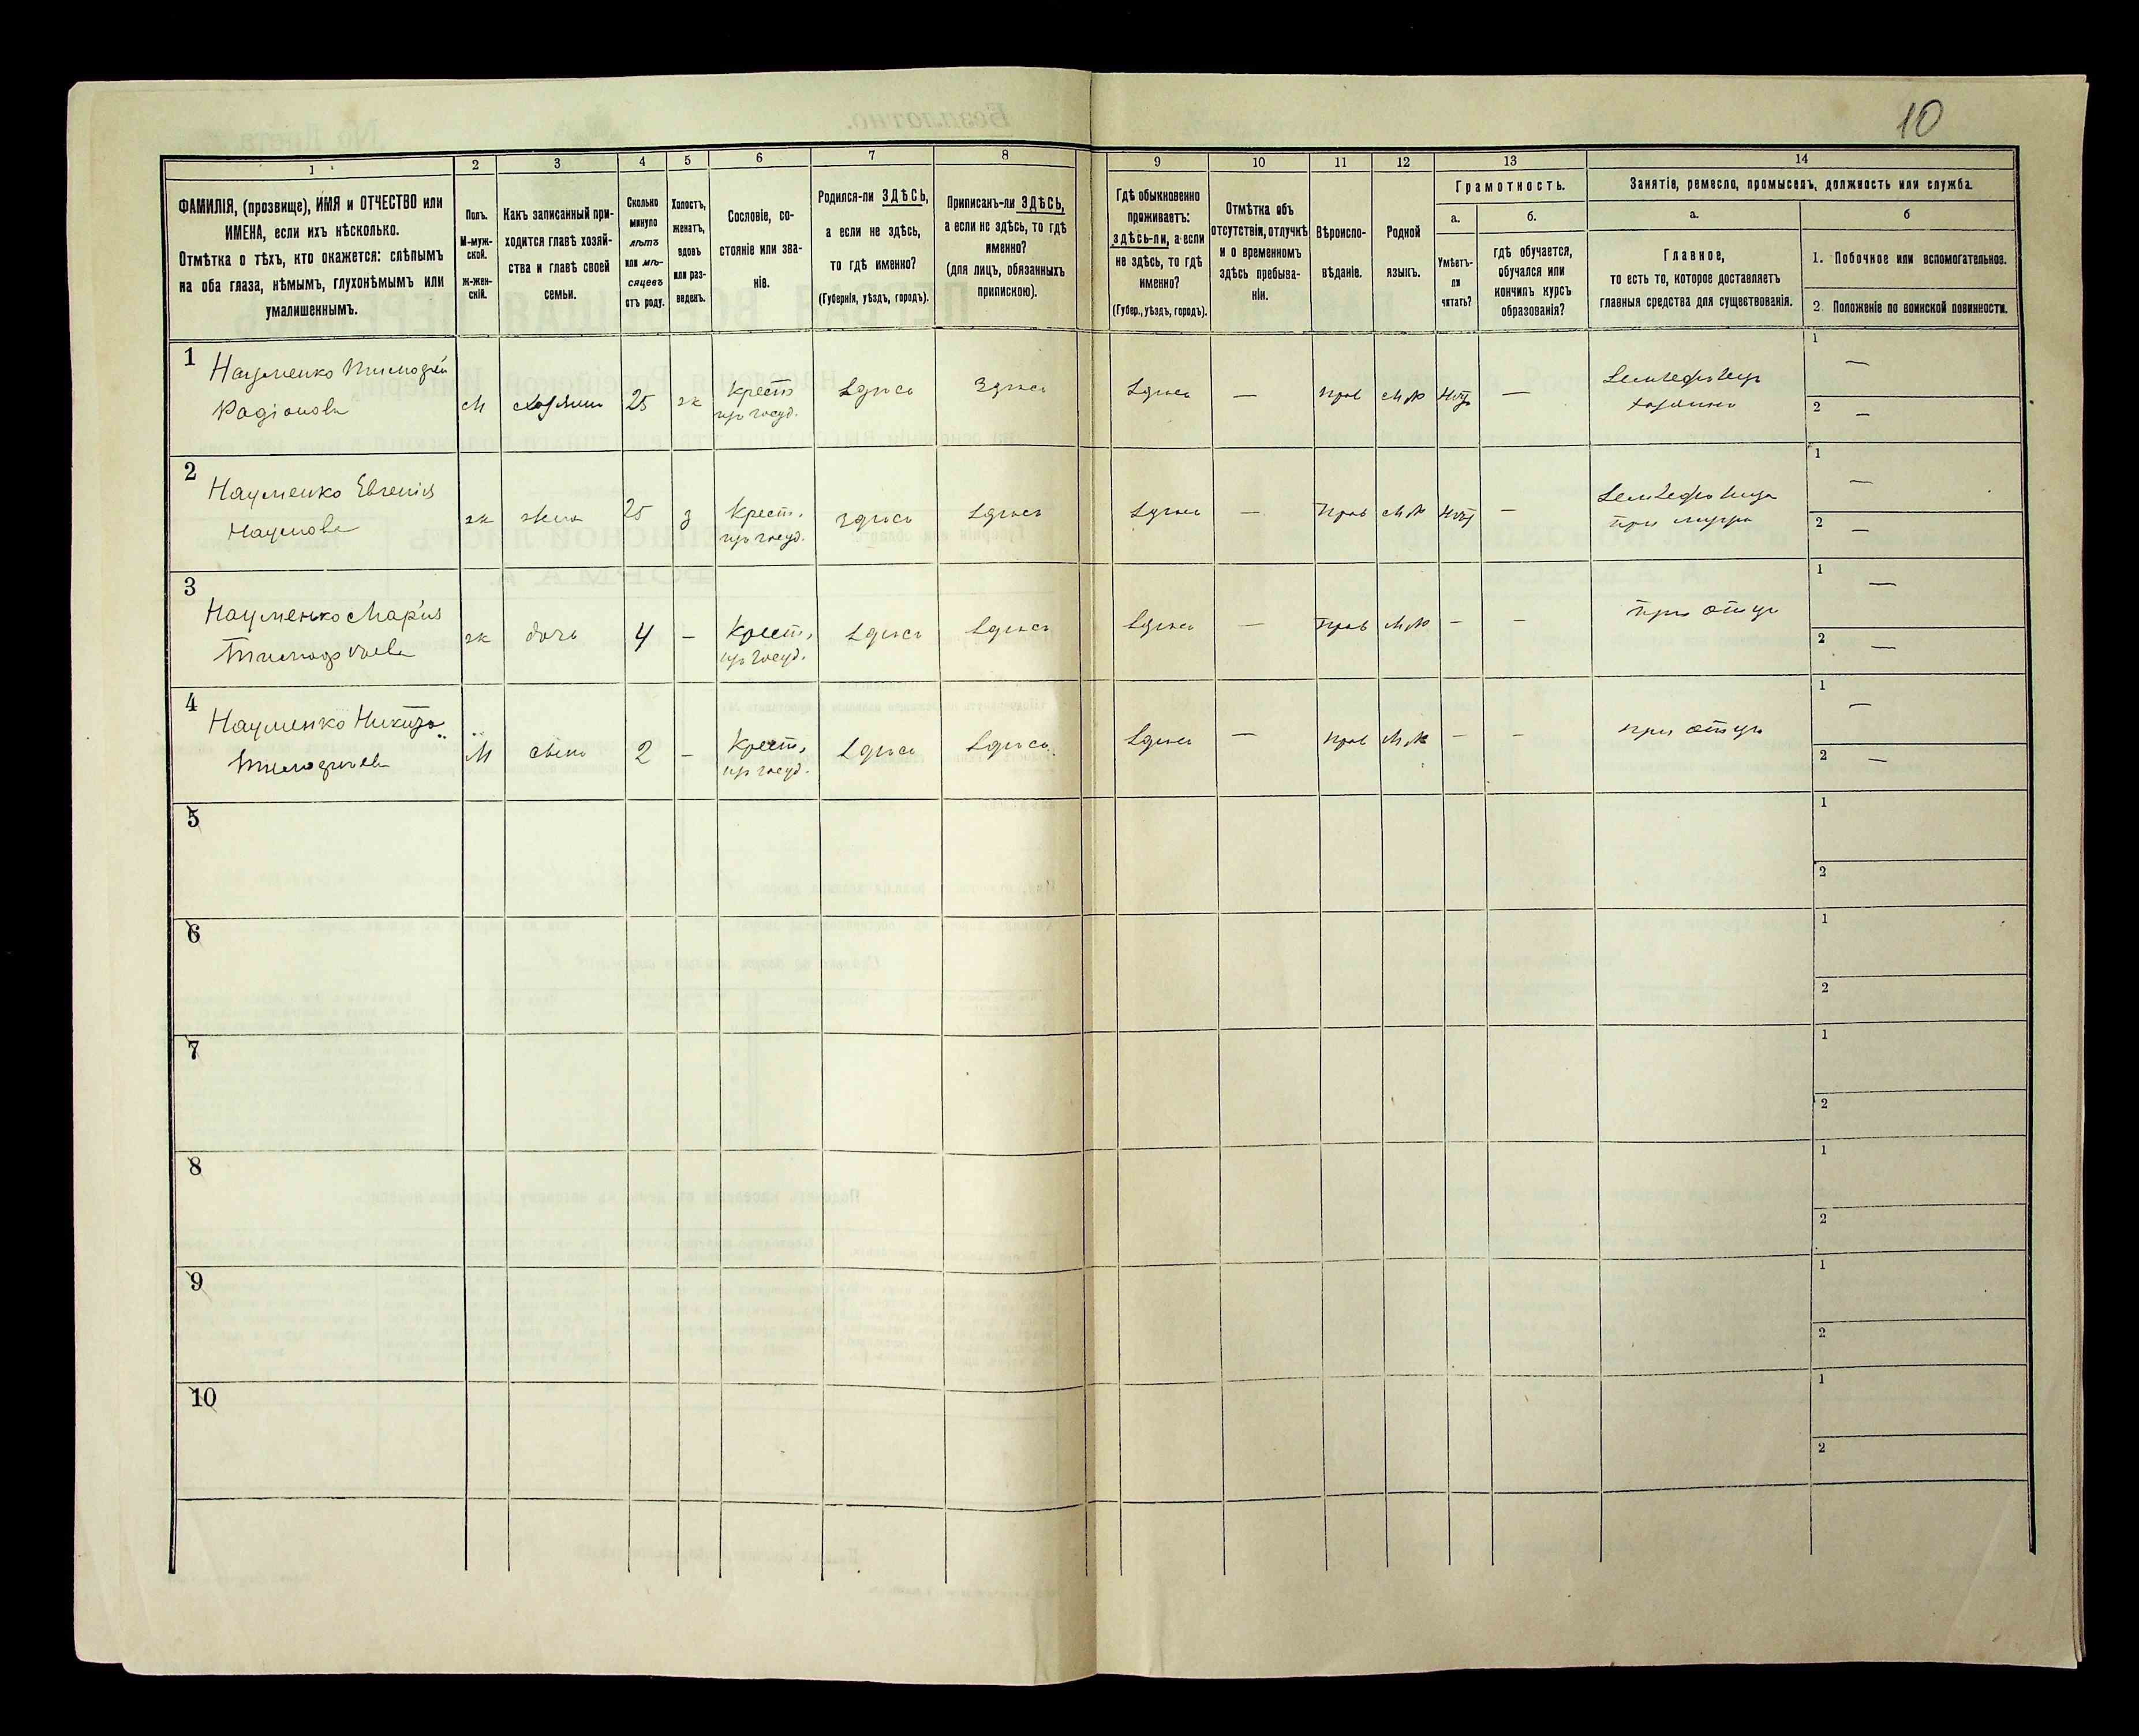 10
1 2 3 4 5 6 7 8 9 10 11 12 13 14
ФАМИЛІЯ, (прозвище), ИМЯ и ОТЧЕСТВО или
ИМЕНА, если ихъ нѣсколько.
Отмѣтка о тѣхъ, кто окажется: слѣпымъ
на оба глаза, нѣмымъ, глухонѣмымъ или
умалишеннымъ.
Полъ.
М-муж-
ской.
ж-жен-
скій.
Какъ записанный при-
ходится главѣ хозяй-
ства и главѣ своей
семьи.
Сколько
минуло
лѣтъ
или мѣ-
сяцевъ
отъ роду.
Холостъ,
женатъ,
вдовъ
или раз-
веденъ.
Сословіе, со-
стояніе или зва-
ніе.
Родился-ли ЗДѢСЬ,
а если не здѣсь,
то гдѣ именно?
(Губернія, уѣздъ, городъ).
Приписанъ-ли ЗДѢСЬ,
а если не здѣсь, то гдѣ
именно?
(для лицъ, обязанныхъ
припискою).
Гдѣ обыкновенно
проживаетъ:
здѣсь-ли, а если
не здѣсь, то гдѣ
именно?
(Губер., уѣздъ, городъ).
Отмѣтка объ
отсутствіи, отлучкѣ
и о временномъ
здѣсь пребыва-
ніи.
Вѣроиспо-
вѣданіе.
Родной
языкъ.
Грамотность.
а.
Умѣетъ-
ли
читать?
б.
гдѣ обучается,
обучался или
кончилъ курсъ
образованія?
Занятіе, ремесло, промыселъ, должность или служба.
а.
Главное,
то есть то, которое доставляетъ
главныя средства для существованія.
б
1. Побочное или вспомогательное.
2. Положеніе по воинской повинности.
1 Науменко Тимофей
Радіоновъ
М хозяинъ 25 ж Крест.
изъ госуд.
Здѣсь Здѣсь Здѣсь — прав М.Р Нѣтъ — Земледѣлецъ
хозяинъ
1 —
2 —
2 Науменко Евгенія
Наумова
ж жена 25 з Крест.
изъ госуд.
здѣсь Здѣсь Здѣсь — Прав М.Р Нѣтъ — Земледѣлица
при мужѣ
1 —
2 —
3 Науменко Марія
Тимофѣева
ж дочь 4 — Крест.
изъ госуд.
Здѣсь Здѣсь Здѣсь — Прав М.Р — — при отцѣ
1 —
2 —
4 Науменко Никита
Тимофѣевъ
М сынъ 2 — Крест.
изъ госуд.
Здѣсь Здѣсь Здѣсь — прав М.Р — — при отцѣ
1 —
2 —
5
1
2
6
1
2
7
1
2
8
1
2
9
1
2
10
1
2